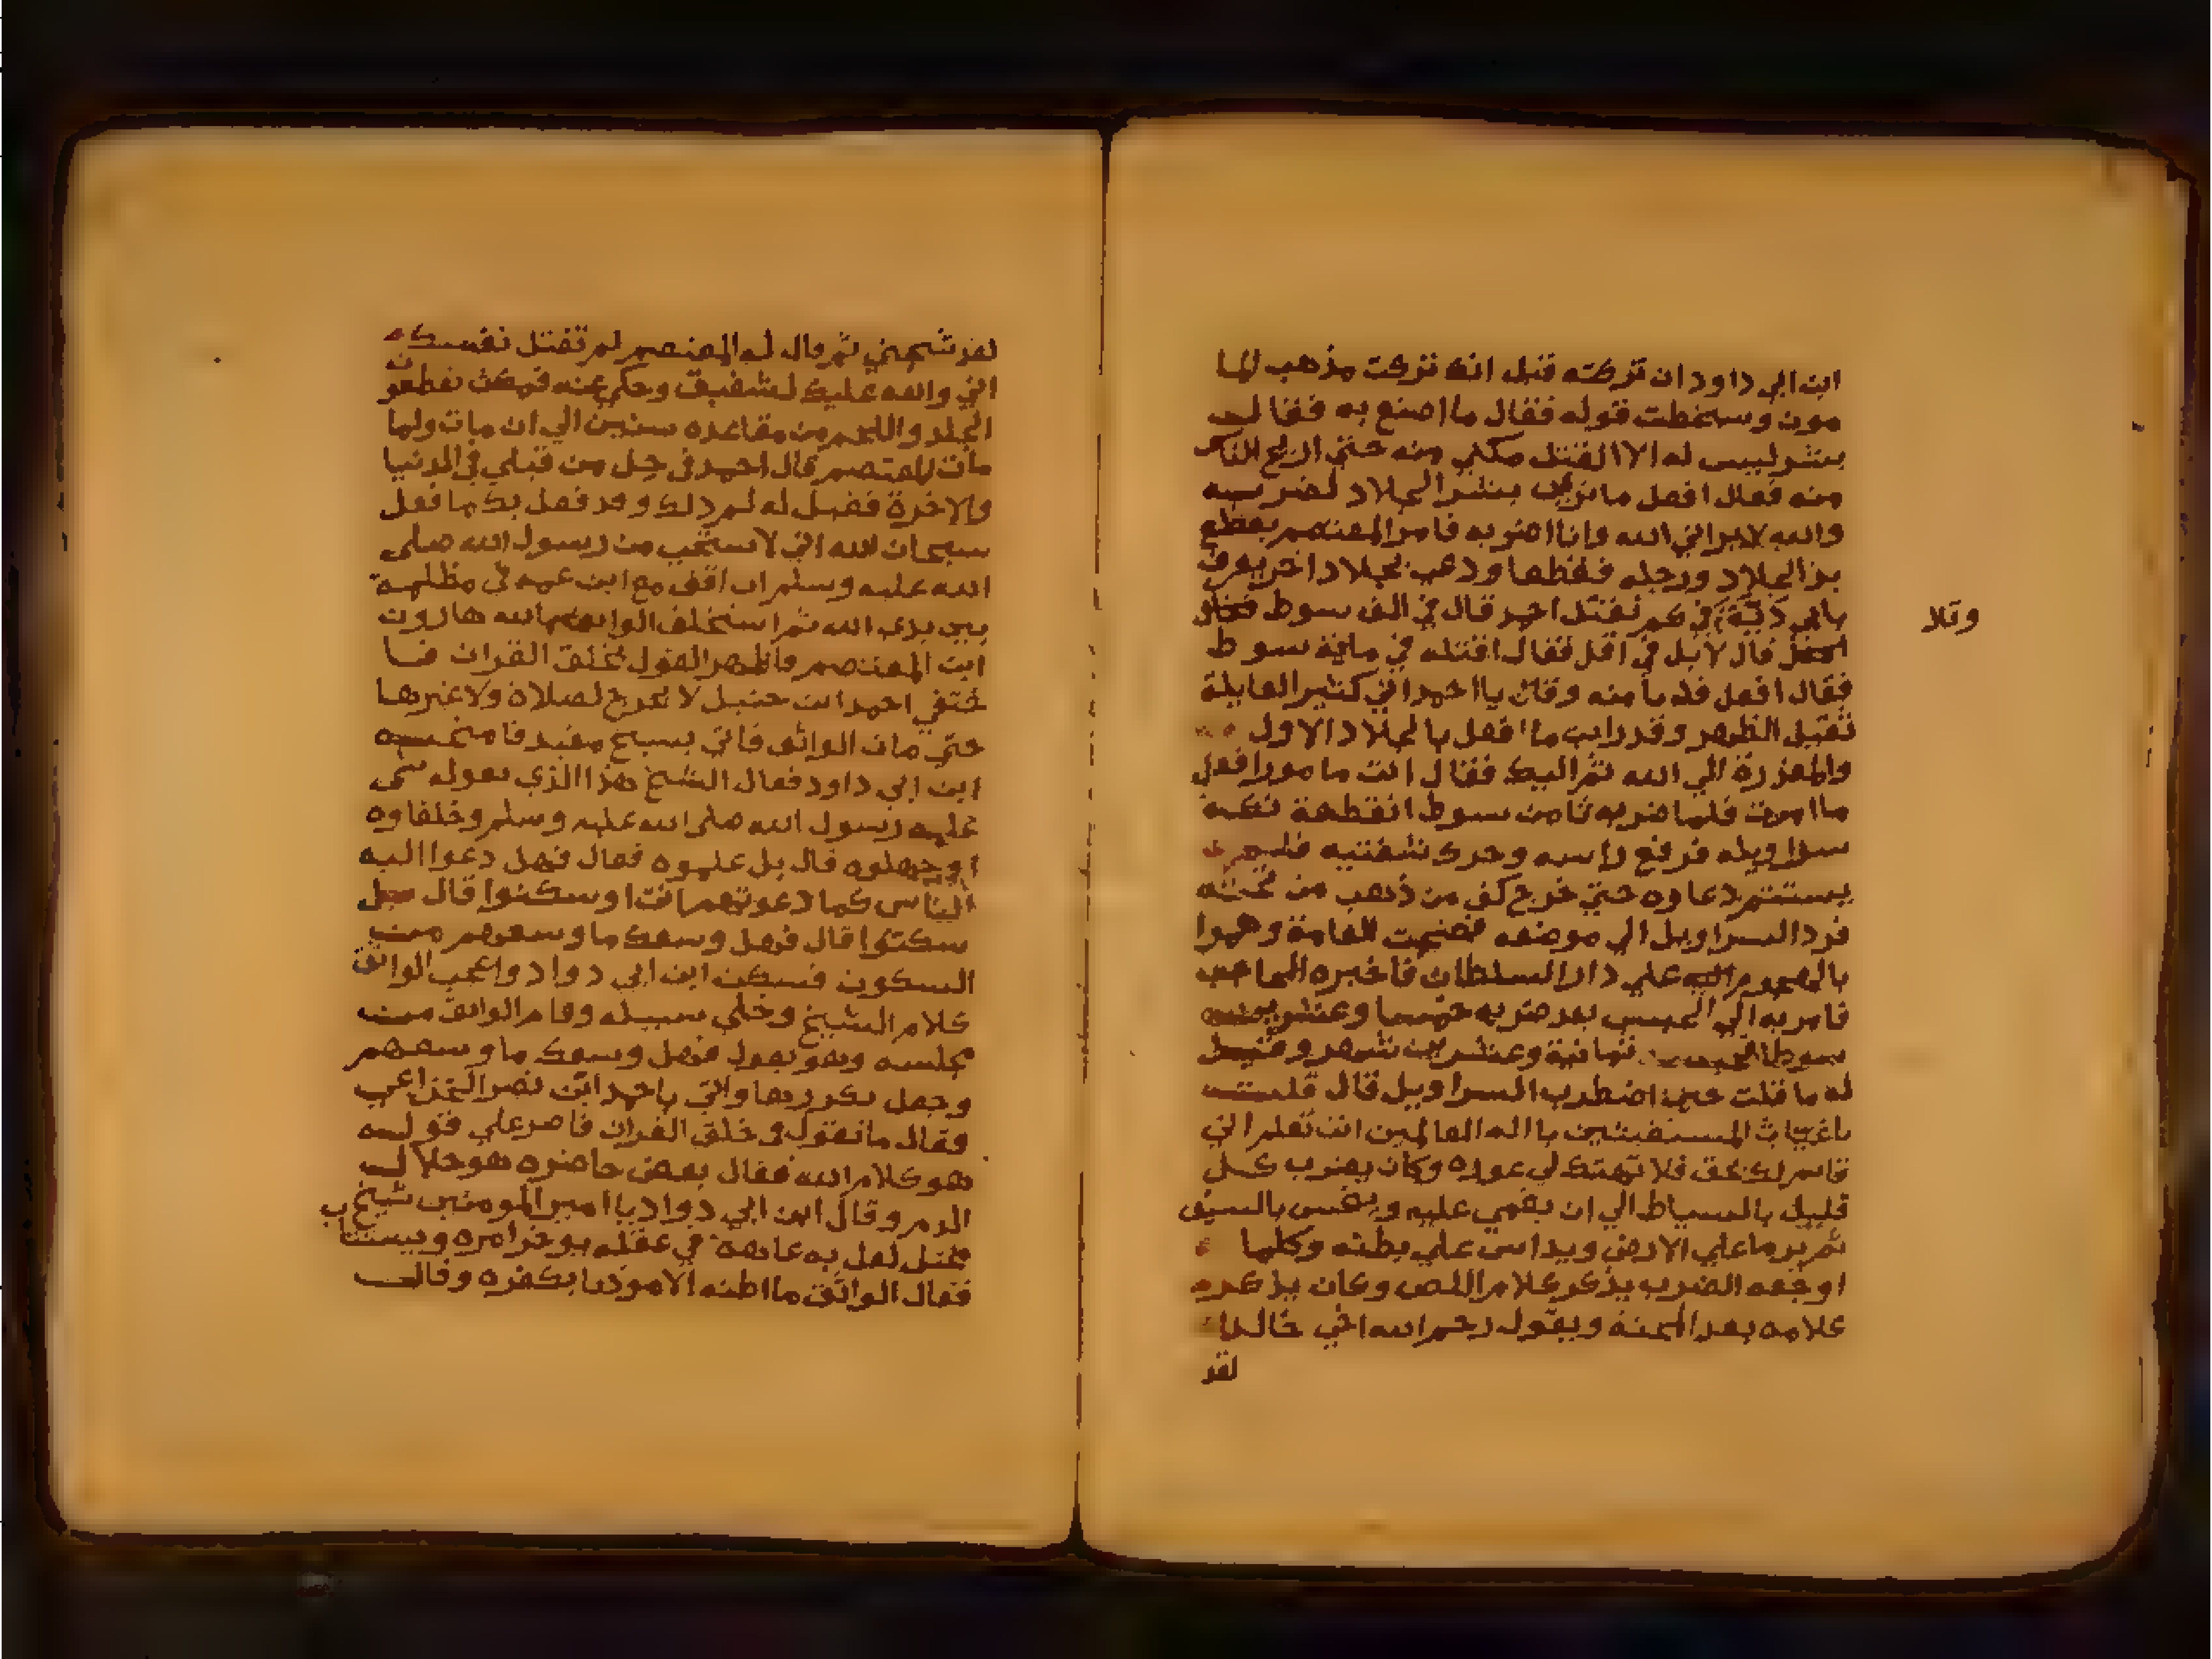 ابن ابي داود ان تركته قيل انك تركت مذهب الما
مون وسخطت قوله فقال ما اصنع به فقال
بشر ليس له الا القتل مكني منه حتي اريح الناس
منه فقال افعل ما تريد بشر الجلاد لضربه
والله لا يراني الله وانا اضربه فامر المعتصم بقطع
يد الجلاد ورجله فقطعا ودعي بجلاد اخر يعرف
بابي دنية في كم تقتل احمد قال في الف سوط فقال
قال لا بل في اقل فقال اقتله في ماية سوط
وتلا
فقال افعل فدنا منه وقال يا احمد اني كثير العايلة
ثقيل الظهر وقد رايت ما افعل بالجلاد الاول
والمعذرة الي الله ثم اليك فقال انت مامور افعل
ما امرت فلما ضربه ثامن سوط انقطعة تكة
سراويله فرفع راسه وحرك شفتيه فلم
يستتم دعاوه حتي خرج كف من ذهب من تحته
فرد السراويل الي موضعه فضجت العامة وهموا
بالهجوم علي دار السلطان فاخبره الحاجب
فامر به الي الحبس بعد ضربه خمسا وعشرين
سوطا ثمانية وعشرين شهر وقيل
له ما قلت حين اضطرب السراويل قال قلت
يا غياث المستغيثين يا اله العالمين ان تعلم اني
قايم لك بحق فلا تهتك لي عورة وكان يضرب كل
قليل بالسياط الي ان يغمي عليه وينخس بالسيف
ثم يرما علي الارض ويداس علي بطنه وكلما
اوجعه الضرب يذكر كلام اللص وكان يذكر
كلامه بعد المحنة ويقول رحم الله اخي خالد
لقد
لقد شجعني ثم قال له المعتصم لم تقتل نفسك
اني والله عليك لشفيق وحكي عنه فمكث يقطعون
الجلد واللحم من مقاعده سنين الي ان مات ولما
مات المعتصم قال احمد في حل من قبلي في الدنيا
والاخرة فقيل له لم ذلك وقد فعل بك ما فعل
سبحان الله اني لاستحيي من رسول الله صلي
الله عليه وسلم ان اقف مع ابن عمه في مظلمة
بين يدي الله ثم استخلف الواثق بالله هارون
ابن المعتصم فاظهر القول بخلق القران فا
ختفي احمد ابن حنبل لا يخرج لصلاة ولا غيرها
حتي مات الواثق فاتي بشيخ مقيد فامتحنه
ابن ابي داود فقال الشيخ هذا الذي تقوله شي
علمه رسول الله صلي الله عليه وسلم وخلفاوه
او جهلوه قال بل علموه فقال فهل دعوا اليه
الناس كما دعوتهم انت او سكتوا قال بل
سكتوا قال فهل وسعك ما وسعهم من
السكون فسكن ابن ابي دواد واعجب الواثق
كلام الشيخ وخلي سبيله وقام الواثق من
مجلسه وهو يقول فهل وسعك ما وسعهم
وجعل يكررها واتي باحمد ابن نصر الخزاعي
وقال ما تقول في خلق القران فاصر علي قوله
هو كلام الله فقال بعض حاضره هو حلال
الدم وقال ابن ابي دواد يا امير المومنين شيخ
مختل لعل به عاهة في عقله يوخر امره ويستتاب
فقال الواثق ما اظنه الا موديا بكفره وقال